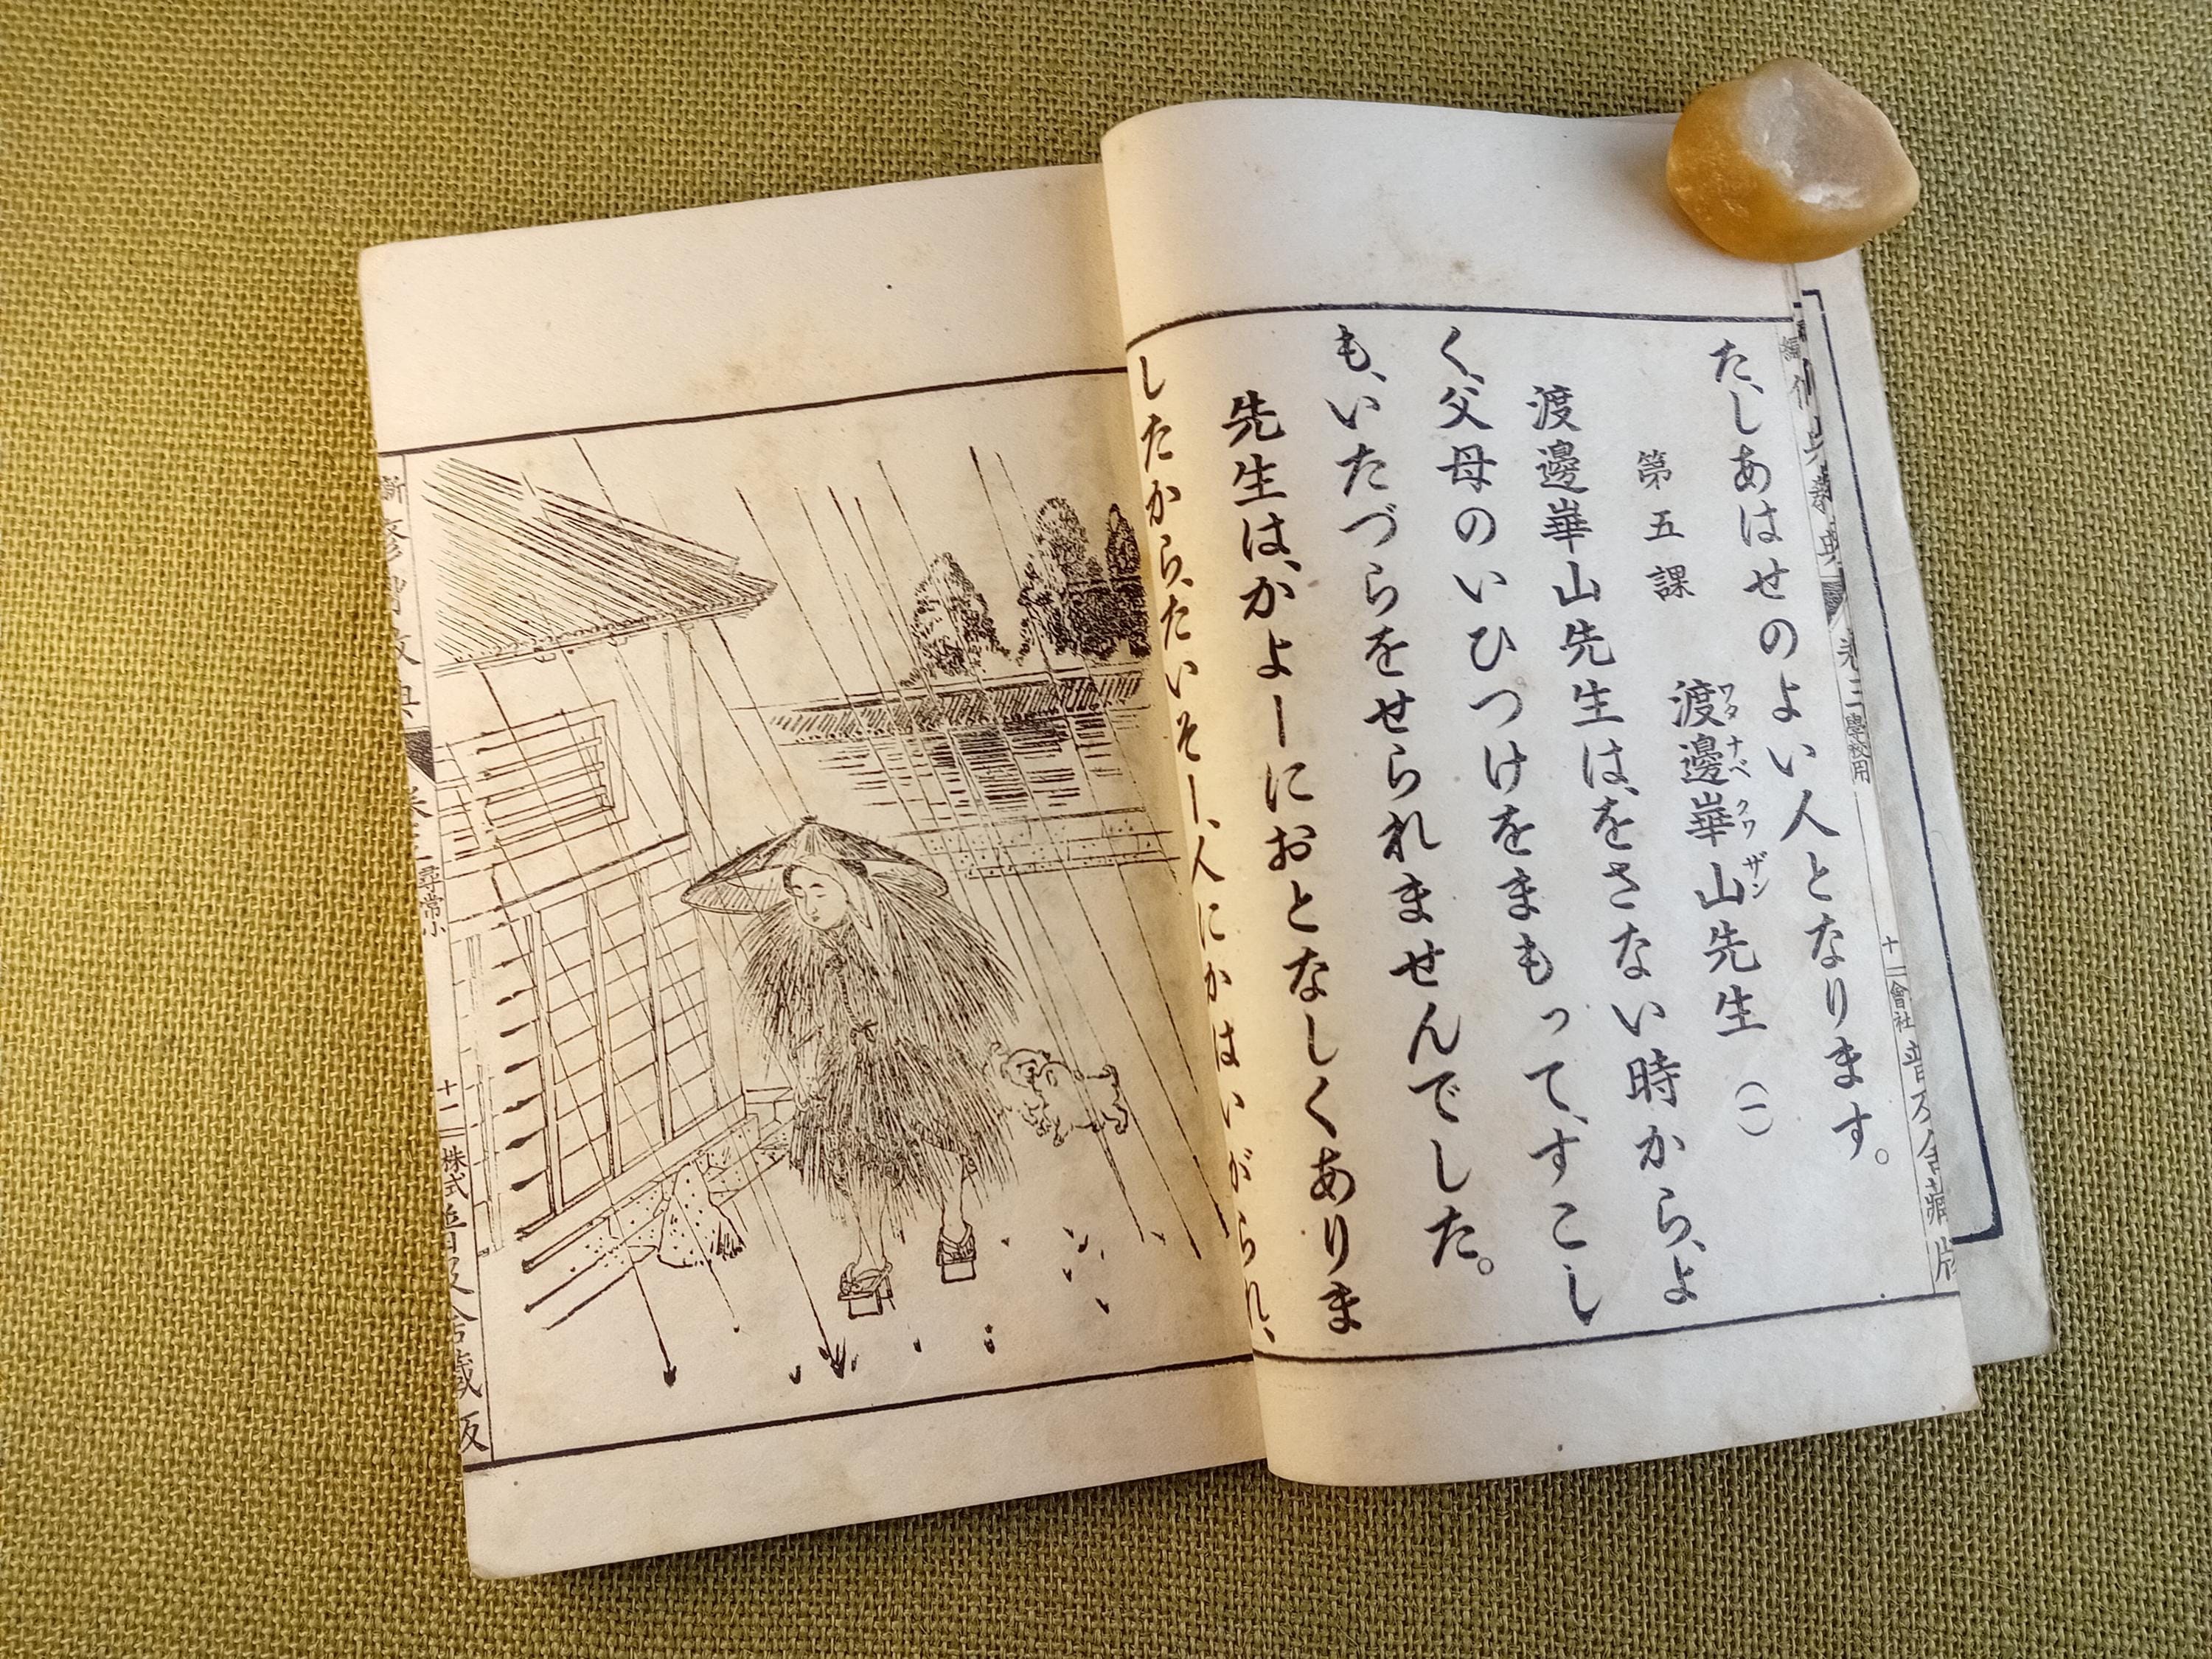 た、しあはせのよい人となります。
第五課　渡邊崋山先生（一）
ワタナベクワザン
渡邊崋山先生は、をさない時から、よ
く、父母のいひつけをまもって、すこし
も、いたづらをせられませんでした。
先生は、かよーにおとなしくありま
したから、たいそー、人にかはいがられ、
卷三 學校用
十一 會社 普及舍藏版
尋常小
十二 株式 普及舍藏版